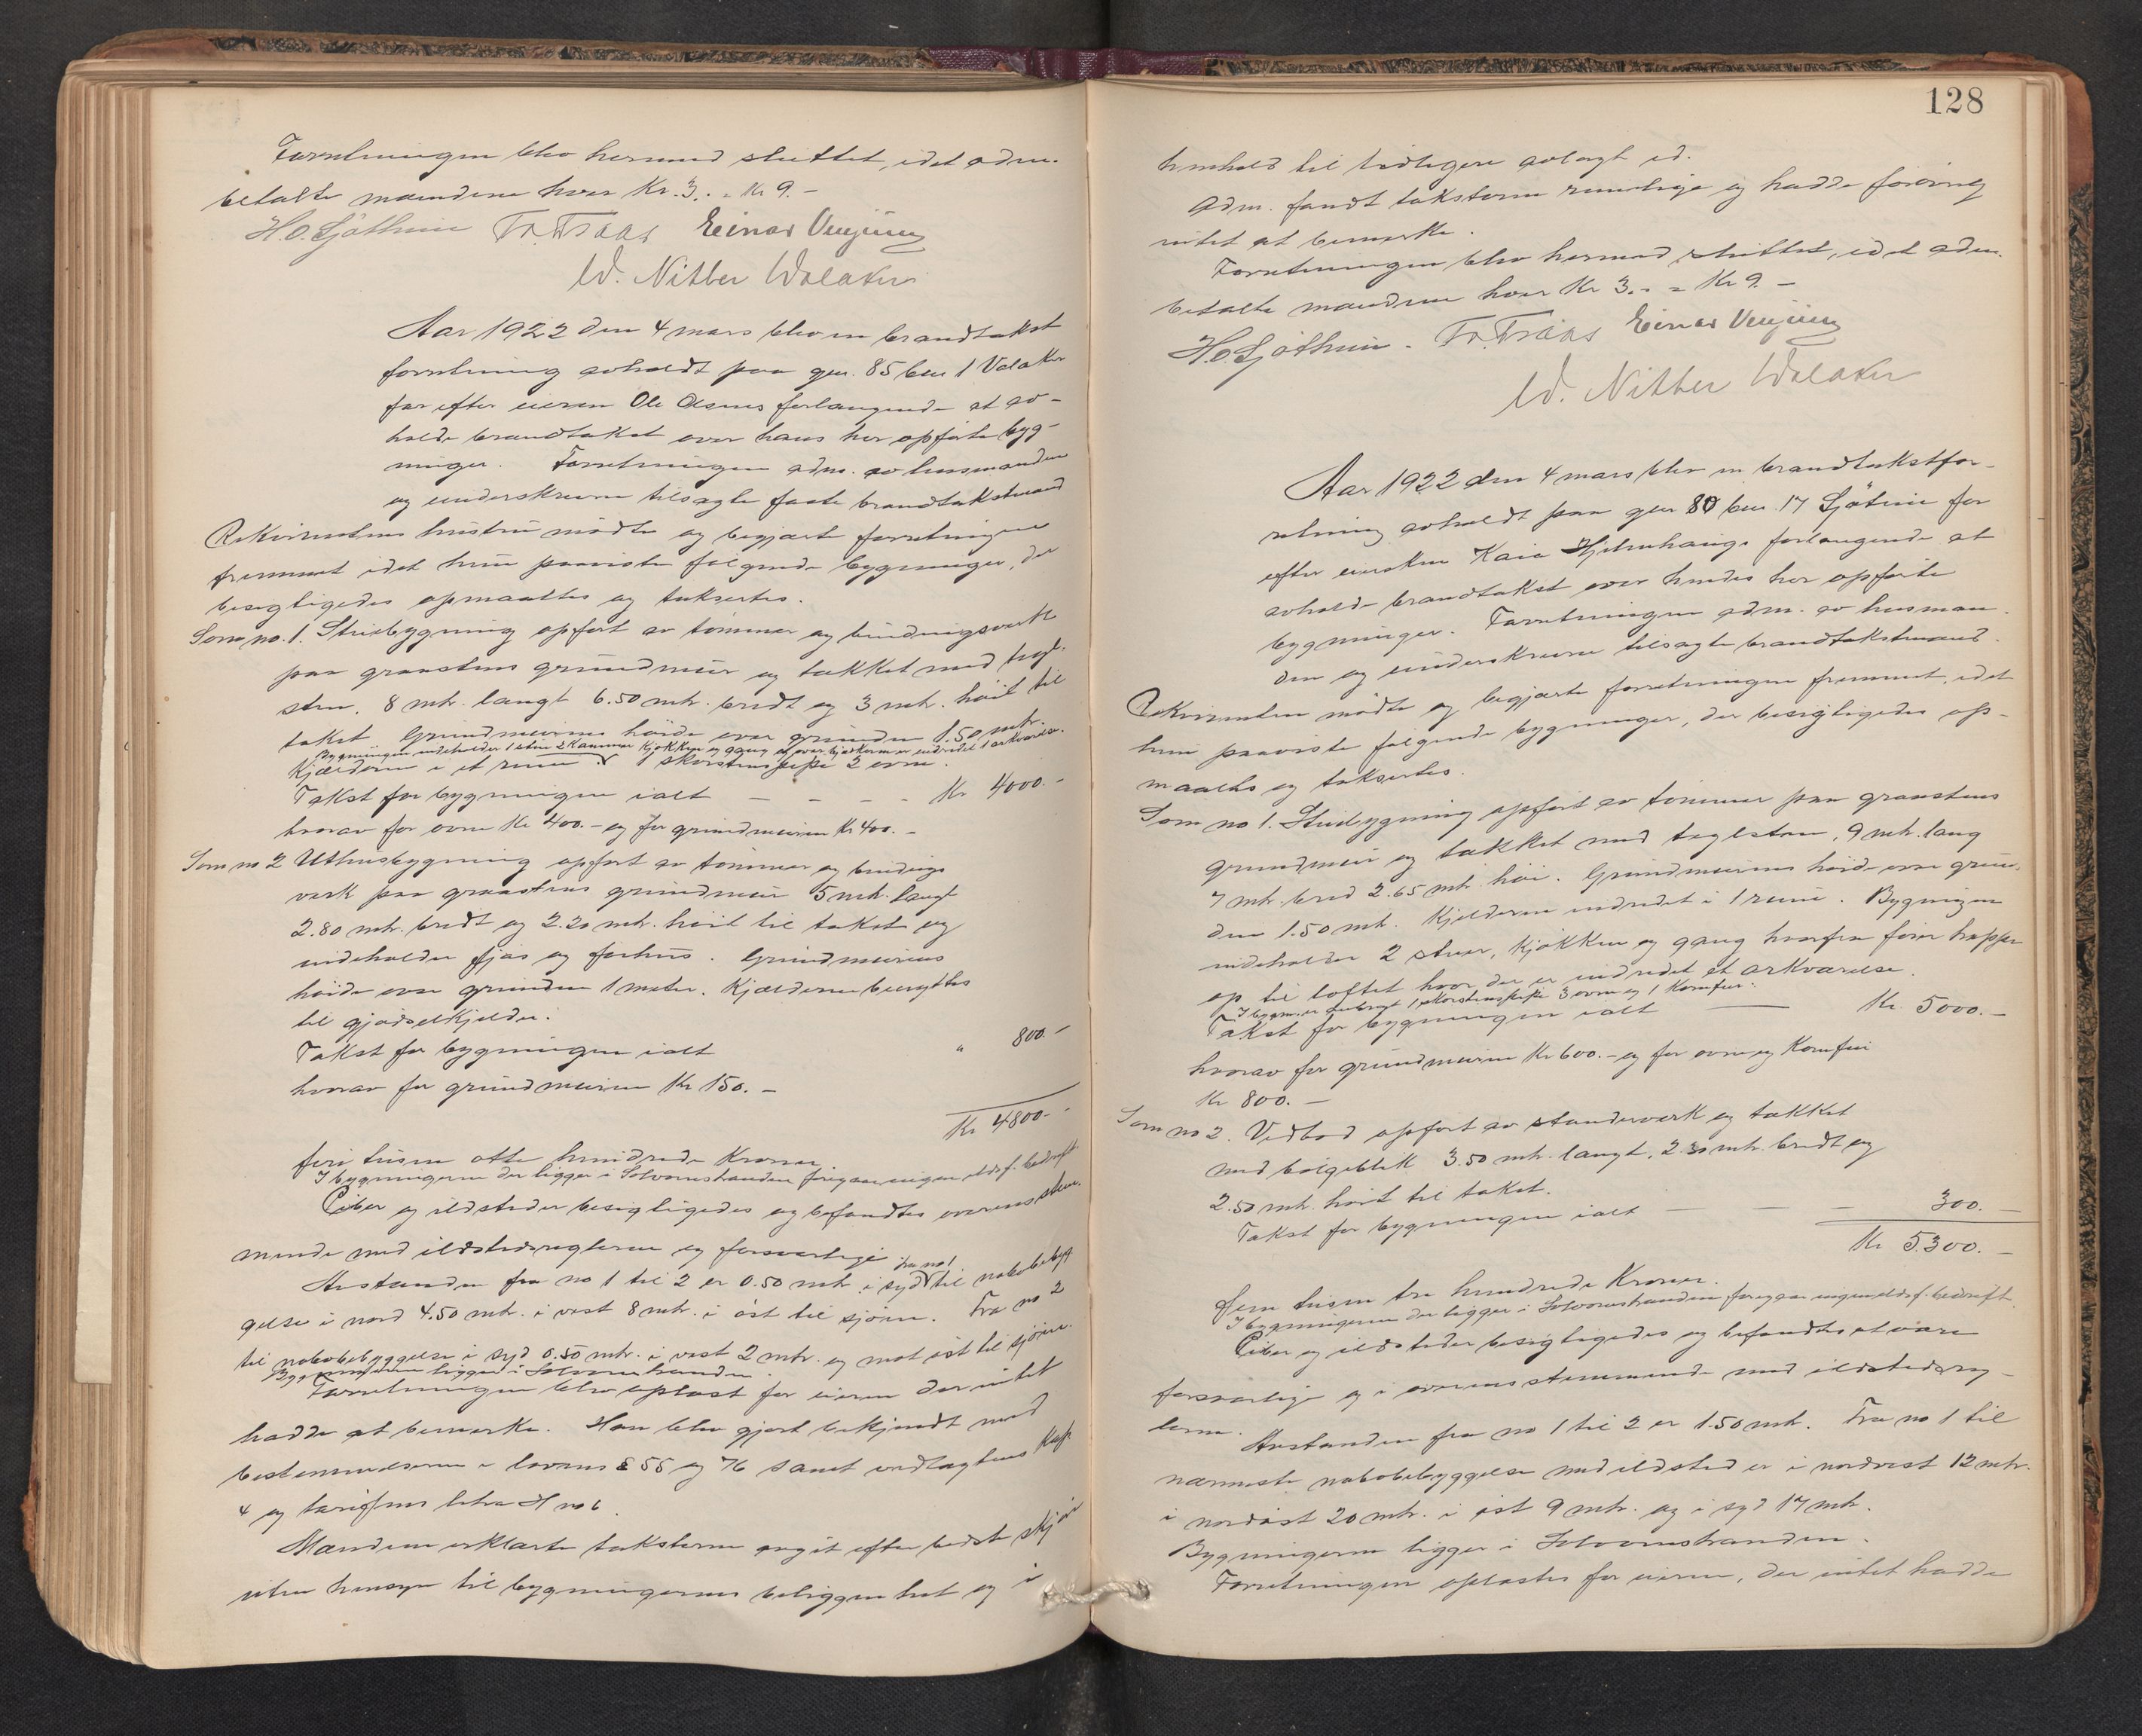 Forretningen blev hermed sluttet, idet adm.
betalte mændene hver Kr. 3.- = Kr 9.-
H. O. Sjøthun Fr. Fraas Einar Venjum
W. Nitter Walaker
Aar 1922 den 4 mars blev en brandtakst
forretning avholdt paa gnr. 85 bnr 1 Valaker
for efter eieren Ole Olsens forlangende at av-
holde brandtakst over hans her opførte byg-
ninger. Forretningen adm. av lensmanden
og underskrevne tilsagte faste brandtakstmænd
Rekvirentens hustru mødte og begjærte forretningen
fremmet idet hun paaviste følgende bygninger, der
besigtigedes opmaaltes og taksertes.
Som no. 1. Stuebygning opført av tømmer og bindingsverk
paa graastens grundmur og tækket med tegl-
sten. 8 mtr. langt 6.50 mtr. bredt og 3 mtr. høit til
taket Grundmurens høide over grunden 1.50 mtr.
Bygningen indeholder 1 stue 2 kammer kjøkken og gang og over hjørkerne er indredet 1 arkværelse.
Kjælderen i et rum. 1 skorstenspipe 2 ovne.
Takst for bygningen ialt - - - - Kr 4000.-
hvorav for ovne Kr 400.- og for grundmuren Kr 400.-
Som no 2 Uthusbygning opført av tømmer og bindings
verk paa graastens grundmur 5 mtr. langt
2.80 mtr. bredt og 2.20 mtr. høit til taket og
indeholder fjøs og forhus. Grundmurens
høide over grunden 1 meter. Kjælderen benyttes
til gjødselkjelder.
Takst for bygningen ialt " 800.-
hvorav for grundmuren Kr 150.-
Kr 4800.-
fire tusen otte hundrede Kroner
I bygningerne der ligger i Solvornstranden foregaar ingen ildsf. bedrift
Piber og ildsteder besigtigedes og befandtes overensstem-
mende med ildstedsreglerne og forsvarlige
Avstanden fra no 1 til 2 er 0.50 mtr. i syd fra no 1 til nabobebyg
gelse i nord 4.50 mtr. i vest 8 mtr. i øst til sjøen. Fra no 2
til nabobebyggelse i syd 0.50 mtr. i vest 2 mtr. og mot øst til sjøen.
Bygningerne ligger i Solvornstranden.
Forretningen blev oplæst for eieren der intet
hadde at bemerke. Han blev gjort bekjendt med
bestemmelserne i lovens § 55 og 76 samt vedtægtens kap
4 og tariffens litra H no 6
Mændene erklærte taksterne avgit efter bedste skjøn
uten hensyn til bygningernes beliggenhet og i
128
henhold til tidligere avlagt ed.
Adm. fandt taksterne rimelige og hadde forøvrig
intet at bemerke.
Forretningen blev hermed sluttet, idet adm.
betalte mændene hver Kr 3.- = Kr 9.-
H. O. Sjøthun. Fr. Fraas Einar Venjum
W. Nitter Walaker
Aar 1922 den 4 mars blev en brandtakstfor-
retning avholdt paa gnr 80 bnr. 17 Sjøtun for
efter eiersken Kaia Hjelmhaugs forlangende at
avholde brandtakst over hendes her opførte
bygninger. Forretningen adm. av lensman-
den og underskrevne tilsagte brandtakstmænd.
Rekvirenten mødte og begjærte forretningen fremmet, idet
hun paaviste følgende bygninger, der besigtigedes op-
maaltes og taksertes.
Som no 1. Stuebygning opført av tømmer paa graastens
grundmur og tækket med teglsten, 9 mtr. lang
7 mtr. bred 2.65 mtr. høi. Grundmurens høide over grun-
den 1.50 mtr. Kjelderen indredet i 1 rum. Bygningen
indeholder 2 stuer, kjøkken og gang hvorfra fører trapper
op til loftet hvor der er indredet et arkværelse.
I bygn. er anbragt 1 skorstenspipe 3 ovne og 1 komfur.
Takst for bygningen ialt Kr. 5000.-
hvorav for grundmuren Kr 600.- og for ovne og komfur
Kr 800.-
Som no 2. Vedbod opført av standerverk og tækket
med bølgeblik 3.50 mtr. langt, 2.30 mtr. bredt og
2.50 mtr. høit til taket.
Takst for bygningen ialt - - - 300.-
Kr 5300.-
fem tusen tre hundrede Kroner.
I bygningerne der ligger i Solvornstranden foregaar ingen ildsf. bedrift.
Piber og ildsteder besigtigedes og befandtes at være
forsvarlige og i overensstemmende med ildstedsreg-
lerne.
Avstanden fra no 1 til 2 er 1.50 mtr. Fra no 1 til
nærmeste nabobebyggelse med ildsted er i nordvest 12 mtr.
i nordøst 20 mtr. i øst 9 mtr. og i syd 17 mtr.
Bygningerne ligger i Solvornstranden.
Forretningen oplæstes for eieren, der intet hadde